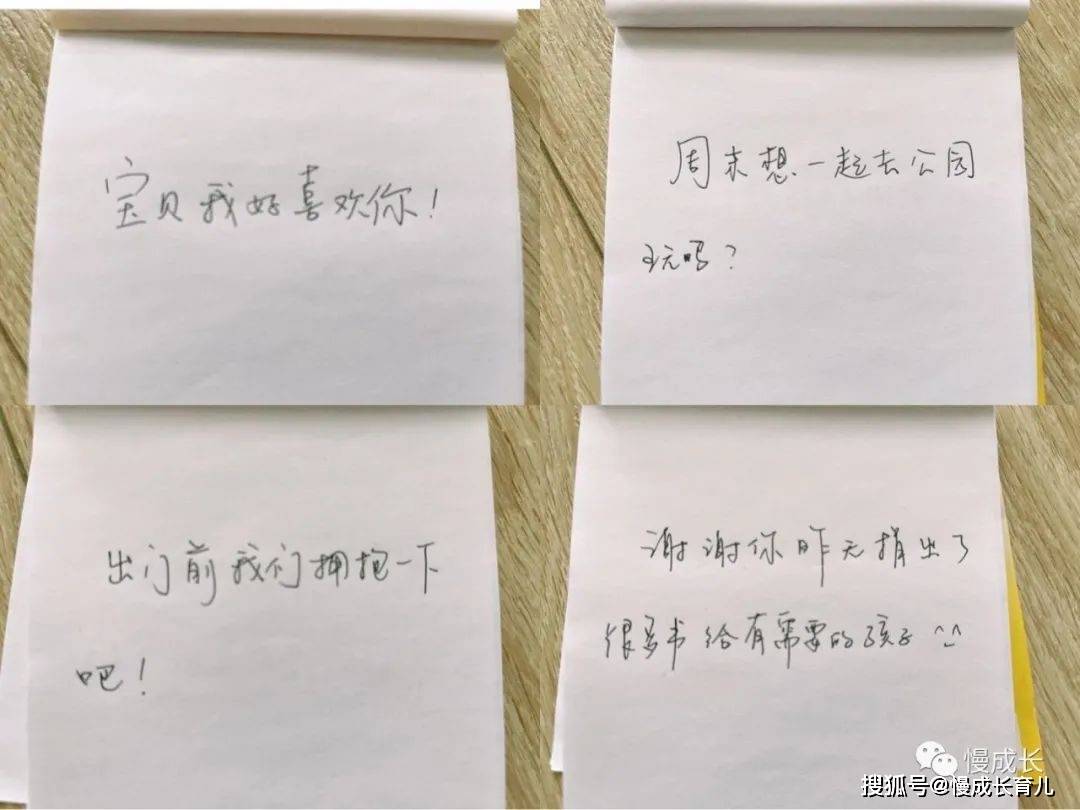 宝贝我好喜欢你!
周末想一起去公园
玩吗?
出门前我们拥抱一下
吧!
谢谢你昨天捐出了
很多书给有需要的孩子 ^_^
慢成长
搜狐号@慢成长育儿